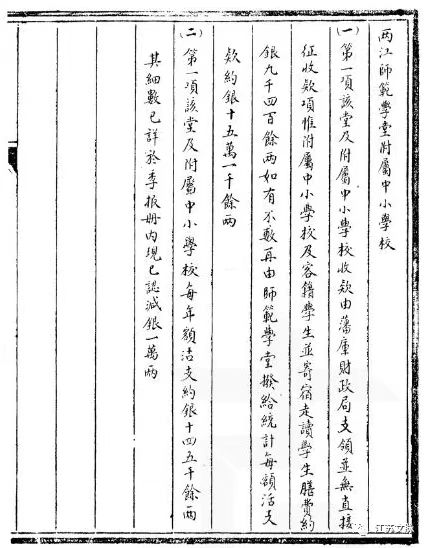 两江師範學堂附屬中小學校
(一)第一項該堂及附屬中小學校收欵由藩庫財政局支領並無直接
征收欵項惟附屬中小學校及客籍學生並寄宿走讀學生膳費約
銀九千四百餘兩如有不敷再由師範學堂撥給統計每額活支
欵約銀十五萬一千餘兩
(二)第一項該堂及附屬中小學校每年額活支約銀十四五千餘兩
其細數已詳於季报册内現已認減銀一萬兩
江苏文